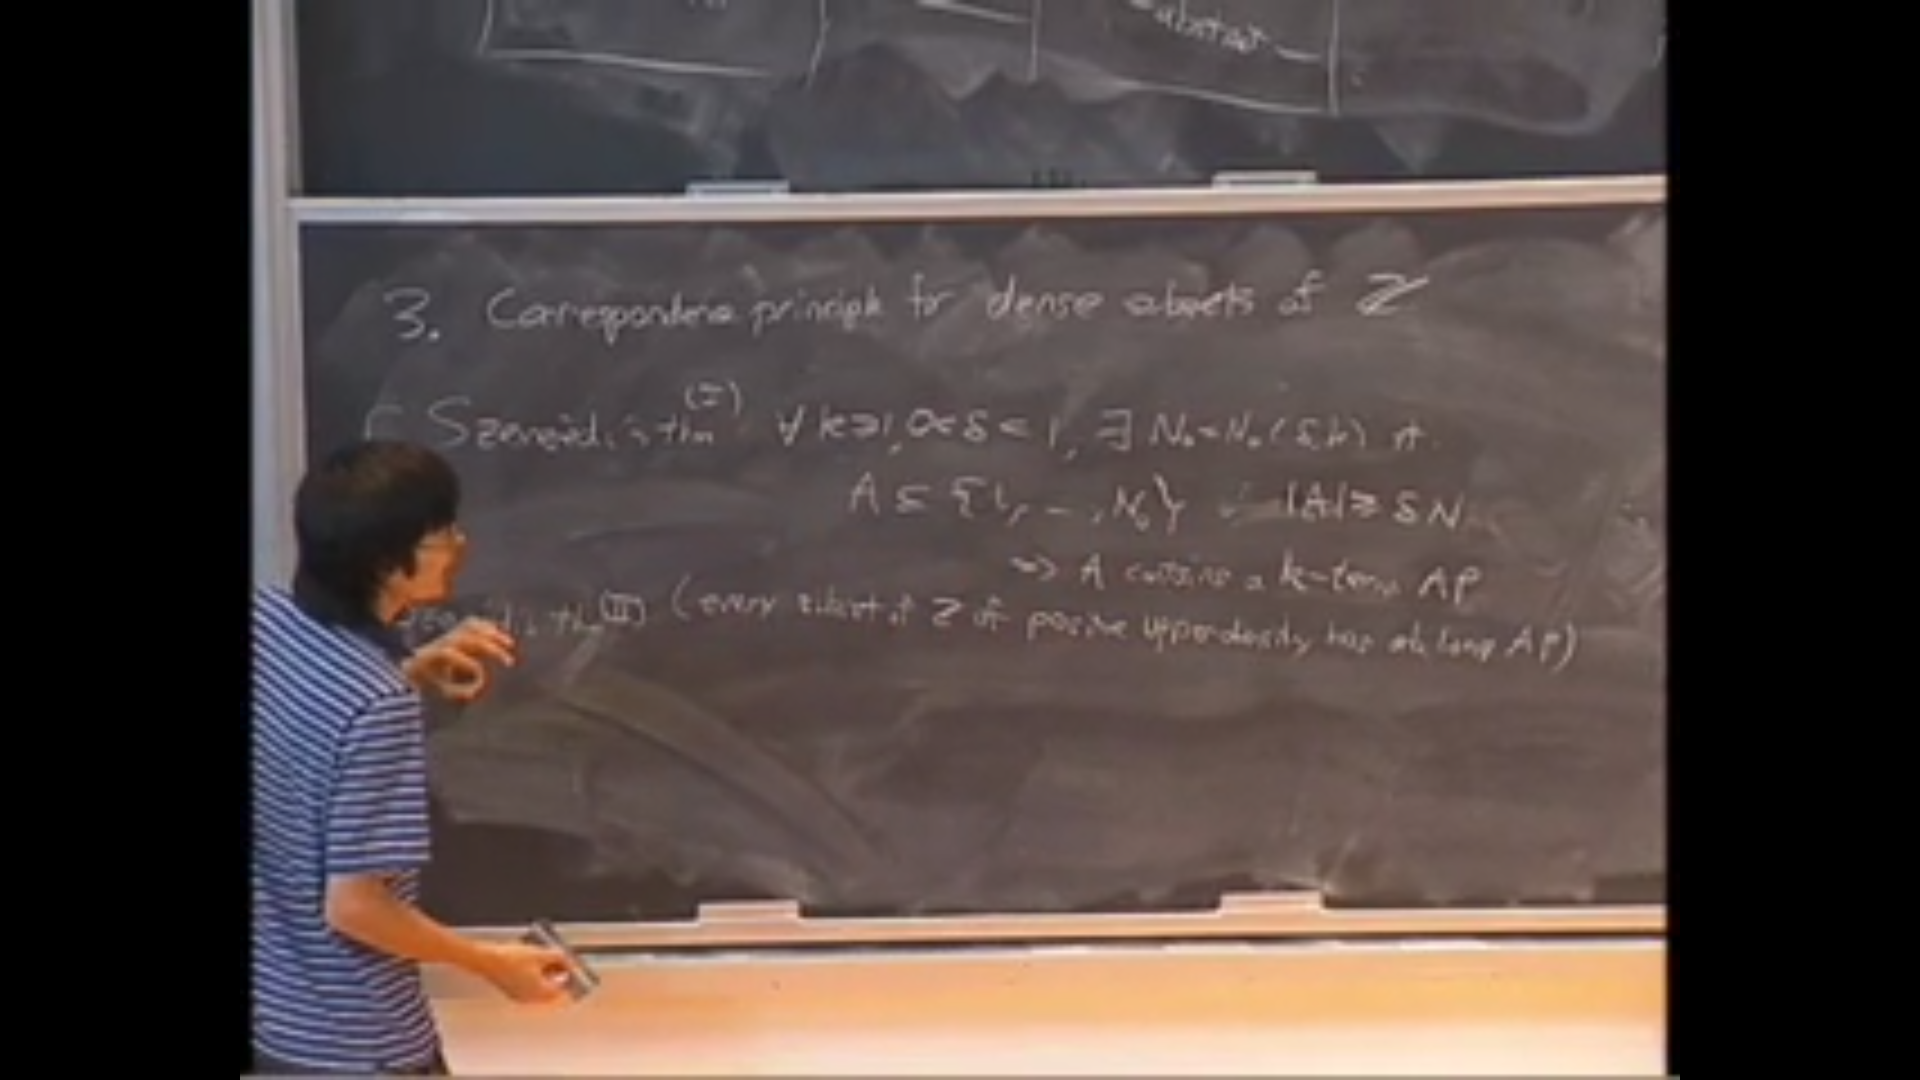 abstract
3. Correspondence principle for dense subsets of Z
Szemerédi's thm (I) ∀ k≥1, 0<δ<1, ∃ N₀=N₀(δ,k) st.
A ⊆ {1, -, N₀} |A| ≥ δN
=> A contains a k-term AP
thm (II) (every subset of Z of positive upper density has arb. long AP)